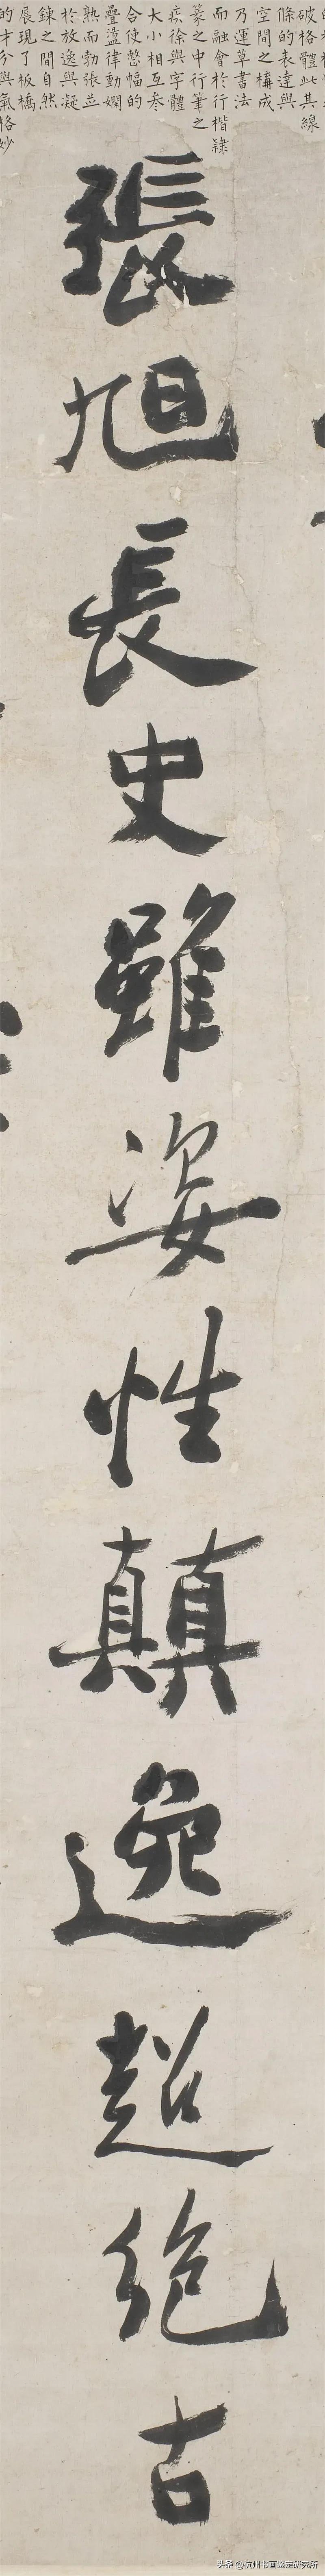 破格體此其線
條的表達與
空間之構成
乃運草書法
而融會於行楷隸
篆之中行筆之
疾徐與字體
大小相互參
合使整幅的
疊盪律動嫻
熟而勃張並
於放逸與凝
鍊之間自然
展現了板橋
的才分與氣格妙
張旭長史雖姿性顛逸超絕古
头条 @杭州书画鉴定研究所